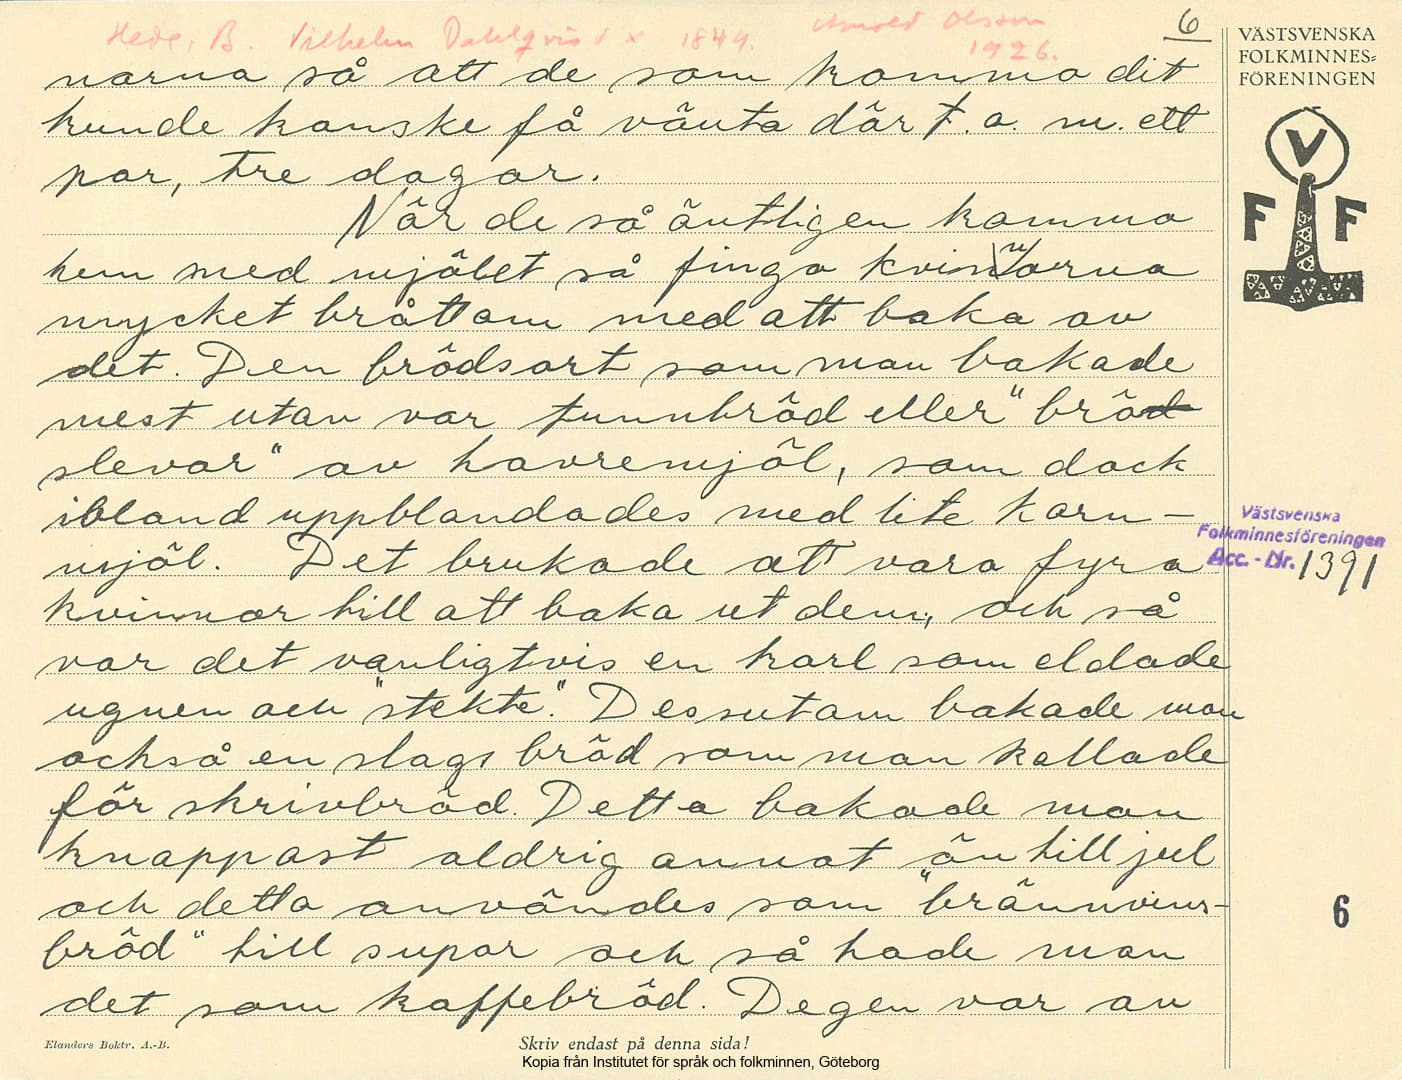 Hede, B. Vilhelm Dahlqvist x 1849. Arnold Olsson
1926.
6
VÄSTSVENSKA
FOLKMINNES=
FÖRENINGEN
V
F F
narna så att de som komma dit
kunde kanske få vänta där t.o.m. ett
par, tre dagar.
När de så äntligen komma
hem med mjölet så finga kvinnorna
mycket bråttom med att baka av
det. Den brödsort som man bakade
mest utav var tunnbröd eller "bröd
slevar" av havremjöl, som dock
ibland uppblandades med lite korn-
mjöl. Det brukade att vara fyra
kvinnor till att baka ut dem, och så
var det vanligtvis en karl som eldade
ugnen och "stekte". Dessutom bakade man
också en slags bröd som man kallade
för skrivbröd. Detta bakade man
knappast aldrig annat än till jul
och detta användes som "brännvins-
bröd" till supar och så hade man
det som kaffebröd. Degen var av
Västsvenska
Folkminnesföreningen
Acc.-Nr. 1391
6
Elanders Boktr. A.-B.
Skriv endast på denna sida!
Kopia från Institutet för språk och folkminnen, Göteborg